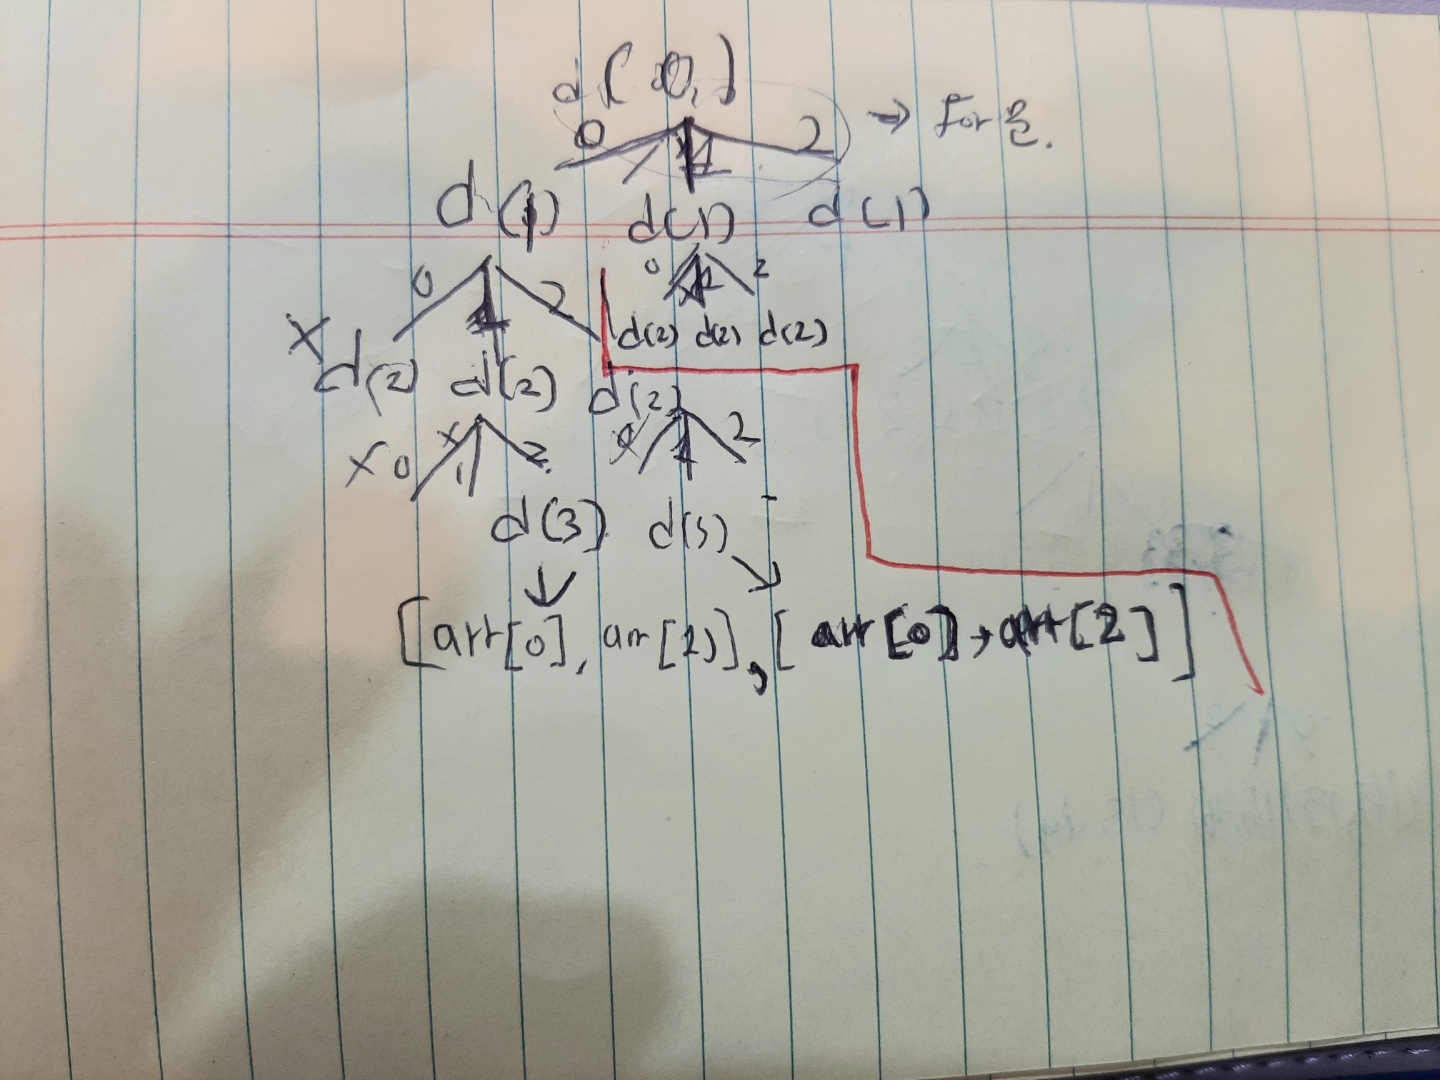 d(0,)
0 1 2 → For 문.
d(1) d(1) d(1)
0 1 2 0 1 2
d(2) d(2) d(2)
X d(2) d(2) d(2)
X 0 X 1 2 0 1 2
d(3) d(3)
[arr[0], arr[1]], [arr[0], arr[2]]